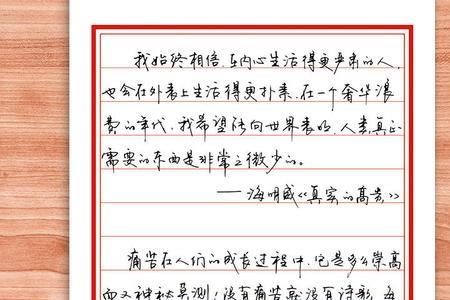 我始终相信,在内心生活得更严肃的人,
也会在外表上生活得更朴素,在一个奢华浪
费的年代,我希望能向世界表明,人类真正
需要的东西是非常之微少的。
——海明威《真实的高贵》
痛苦在人们的成长过程中,它是多么崇高
而又神秘莫测!没有痛苦就没有诗歌,每